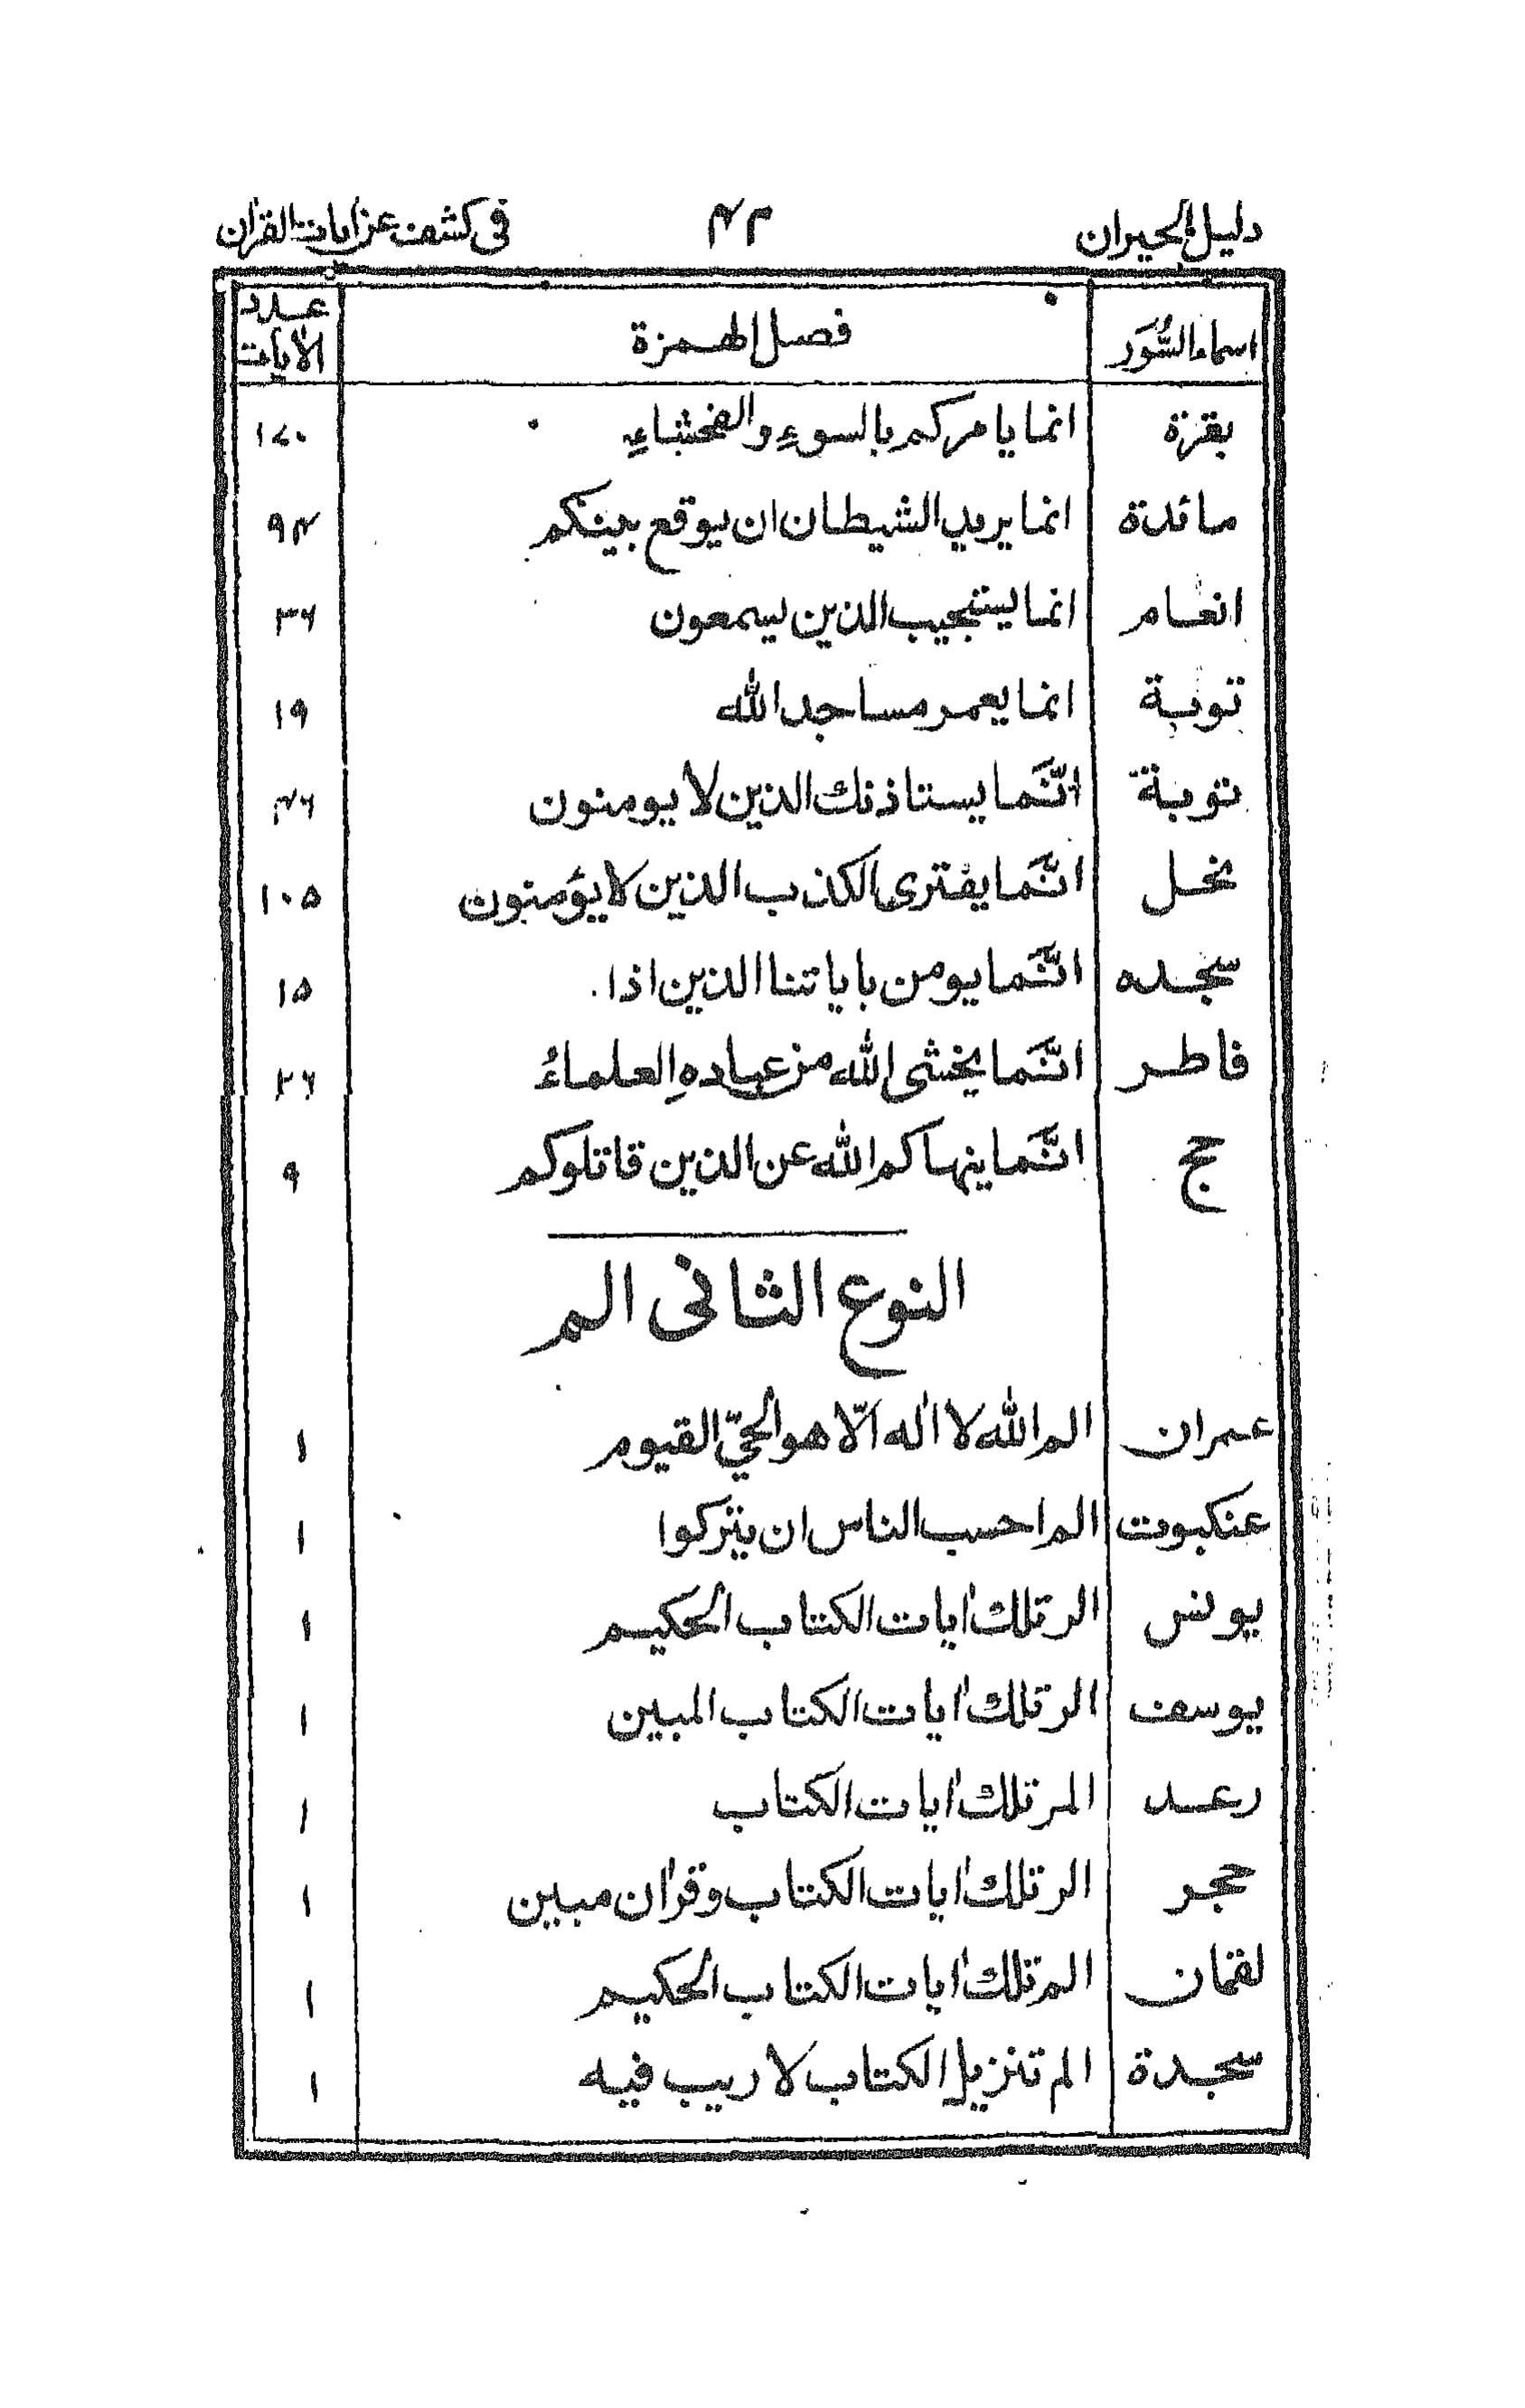 دليل الحيران ٤٢ فى كشف عن ايات القران
اسماء السُّوَر فصل الهمزة عدد الايات
بقرة انما يامركم بالسوءِ والفحشاءِ ١٧٠
مائدة انما يريد الشيطان ان يوقع بينكم ٩٤
انعام انما يستجيب الذين يسمعون ٣٦
توبة انما يعمر مساجد الله ١٩
توبة انَّما يستاذنك الذين لا يومنون ٤٦
نحل انَّما يفترى الكذب الذين لا يؤمنون ١٠٥
سجده انَّما يومن باياتنا الذين اذا ١٥
فاطر انَّما يخشى الله من عبادهِ العلماءُ ٢٦
حج انَّما ينهاكم الله عن الذين قاتلوكم ٩
النوع الثانى الم
عمران الم الله لا اله الّا هو الحيّ القيوم ١
عنكبوت الم احسب الناس ان يتركوا ١
يونس الر تلك ايات الكتاب الحكيم ١
يوسف الر تلك ايات الكتاب المبين ١
رعد المر تلك ايات الكتاب ١
حجر الر تلك ايات الكتاب وقران مبين ١
لقمان الم تلك ايات الكتاب الحكيم ١
سجدة الم تنزيل الكتاب لا ريب فيه ١